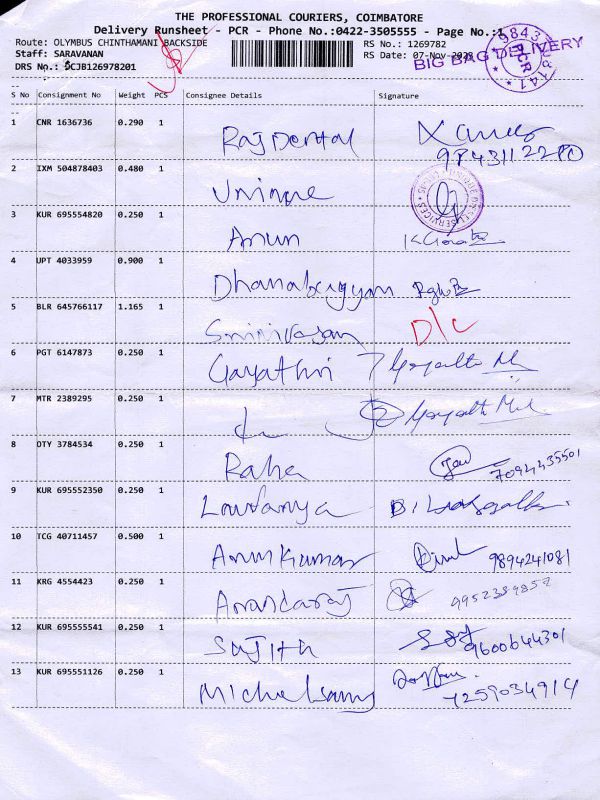 THE PROFESSIONAL COURIERS, COIMBATORE
Delivery Runsheet - PCR - Phone No.:0422-3505555 - Page No.:1
Route: OLYMBUS CHINTHAMANI BACKSIDE RS No.: 1269782
Staff: SARAVANAN RS Date: 07-Nov-2020
BIG BAG DELIVERY
PCR
DRS No.: SCJB126978201
S No Consignment No Weight PCS Consignee Details Signature
1 CNR 1636736 0.290 1 Raj Dental
2 IXM 504878403 0.480 1 Unique
3 KUR 695554820 0.250 1 Arun
4 UPT 4033959 0.900 1 Dhanabagyam
5 BLR 645766117 1.165 1 Srinivasan D/C
6 PGT 6147873 0.250 1 Gayathri
7 MTR 2389295 0.250 1
8 OTY 3784534 0.250 1 Raha 7094435501
9 KUR 695552350 0.250 1 Lavanya
10 TCG 40711457 0.500 1 Arun Kumar 9894241081
11 KRG 4554423 0.250 1 Anandaraj
12 KUR 695555541 0.250 1 Sajith 9600644301
13 KUR 695551126 0.250 1 Michelsamy 7259034914